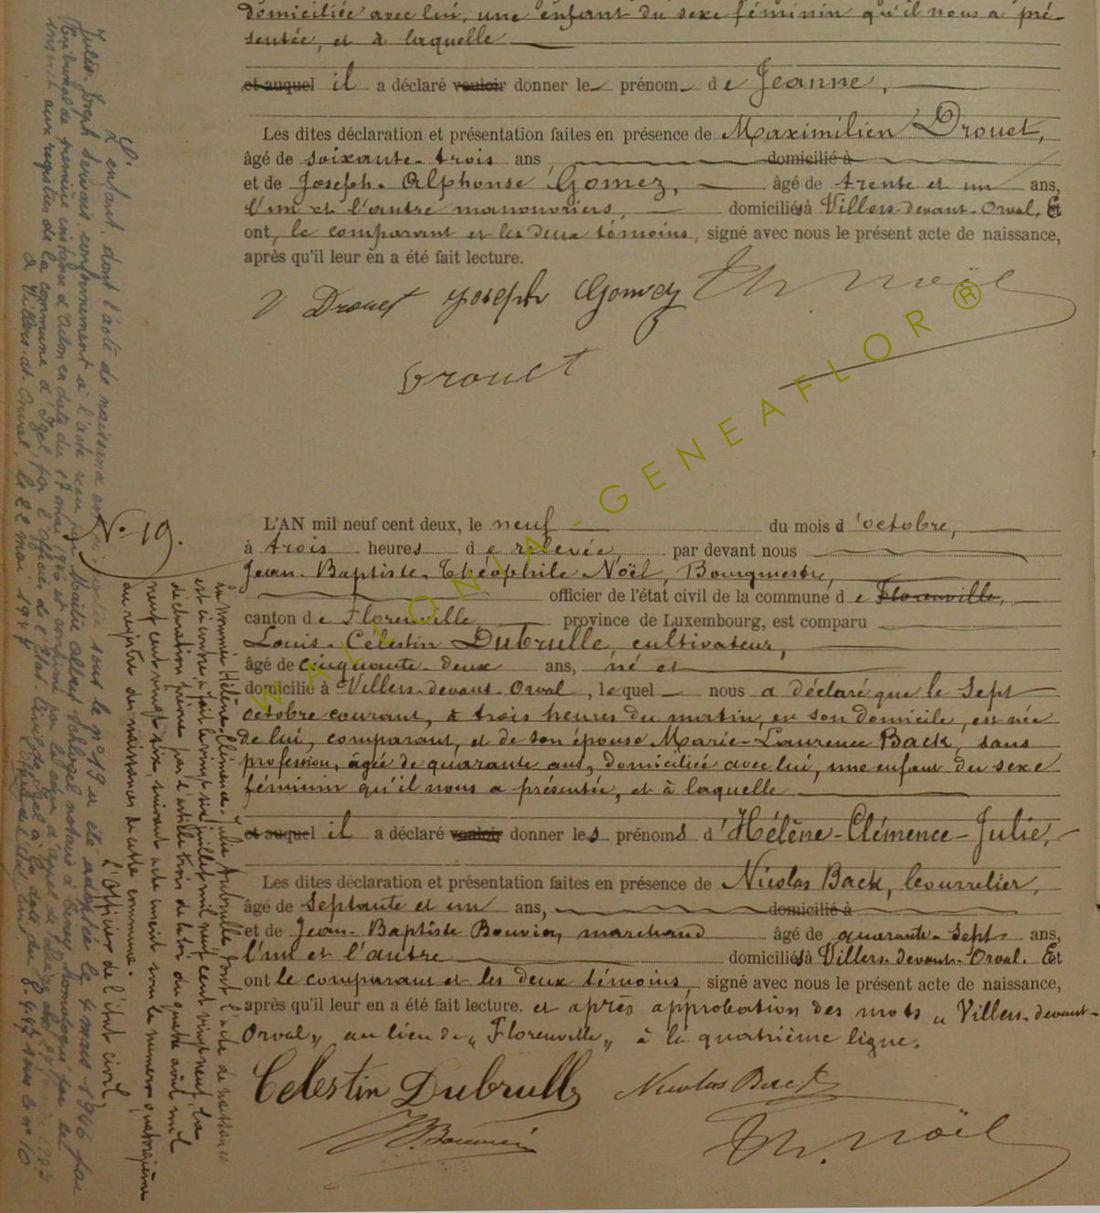 domiciliée avec lui, une enfant du sexe féminin qu'il nous a pré-
sentée, et à laquelle
et auquel il a déclaré vouloir donner le prénom de Jeanne,
Les dites déclaration et présentation faites en présence de Maximilien Drouet,
âgé de soixante-trois ans domicilié à
et de Joseph-Alphonse Gomez, âgé de trente et un ans,
l'un et l'autre manouvriers, domiciliés à Villers-devant-Orval. Et
ont, le comparant et les deux témoins, signé avec nous le présent acte de naissance,
après qu'il leur en a été fait lecture.
Drouet Joseph Gomez Th. Noël
Drouet
WALLONIA-GENEAFLOR ®
No. 19.
L'AN mil neuf cent deux, le neuf du mois d'octobre,
à trois heures de relevée, par devant nous
Jean-Baptiste-Théophile Noël, Bourgmestre,
officier de l'état civil de la commune de Florenville,
canton de Florenville province de Luxembourg, est comparu
Louis-Célestin Dubrulle, cultivateur,
âgé de cinquante-deux ans, né et
domicilié à Villers-devant-Orval, lequel nous a déclaré que le sept
octobre courant, à trois heures du matin, en son domicile, est née
de lui, comparant, et de son épouse Marie-Laurence Back, sans
profession, âgée de quarante ans, domiciliée avec lui, une enfant du sexe
féminin qu'il nous a présentée, et à laquelle
et auquel il a déclaré vouloir donner les prénoms d'Hélène-Clémence-Julie,
Les dites déclaration et présentation faites en présence de Nicolas Back, bourrelier,
âgé de septante et un ans, domicilié à
et de Jean-Baptiste Bouvin, marchand âgé de quarante-sept ans,
l'un et l'autre domiciliés à Villers-devant-Orval. Et
ont le comparant et les deux témoins, signé avec nous le présent acte de naissance,
après qu'il leur en a été fait lecture. et après approbation des mots „Villers-devant-
Orval„ au lieu de „Florenville„ à la quatrième ligne.
Celestin Dubrulle Nicolas Back
Th. Noël
La nommée Hélène-Clémence-Julie Dubrulle, dont l'acte de naissance
est ci-contre, a fait le vingt six juillet mil neuf cent vingt neuf, la
déclaration prévue par l'article trois de la loi du quatre août mil
neuf cent vingt six, suivant acte inscrit sous le numéro quatorzième
au registre des naissances de cette commune.
L'Officier de l'état civil
L'enfant, dont l'acte de naissance est sous le n° 19 a été adoptée le 4 mars 1946 par
Jules Joseph Servais conformément à l'acte reçu par Maître Albert notaire à homologué par le
Tribunal de première instance d'Arlon en date du 17 mai 1946 et
inscrit aux registres de la commune d'Izel, par l'officier de l'Etat Civil
à Villers-dt-Orval, le 22 mai 1947